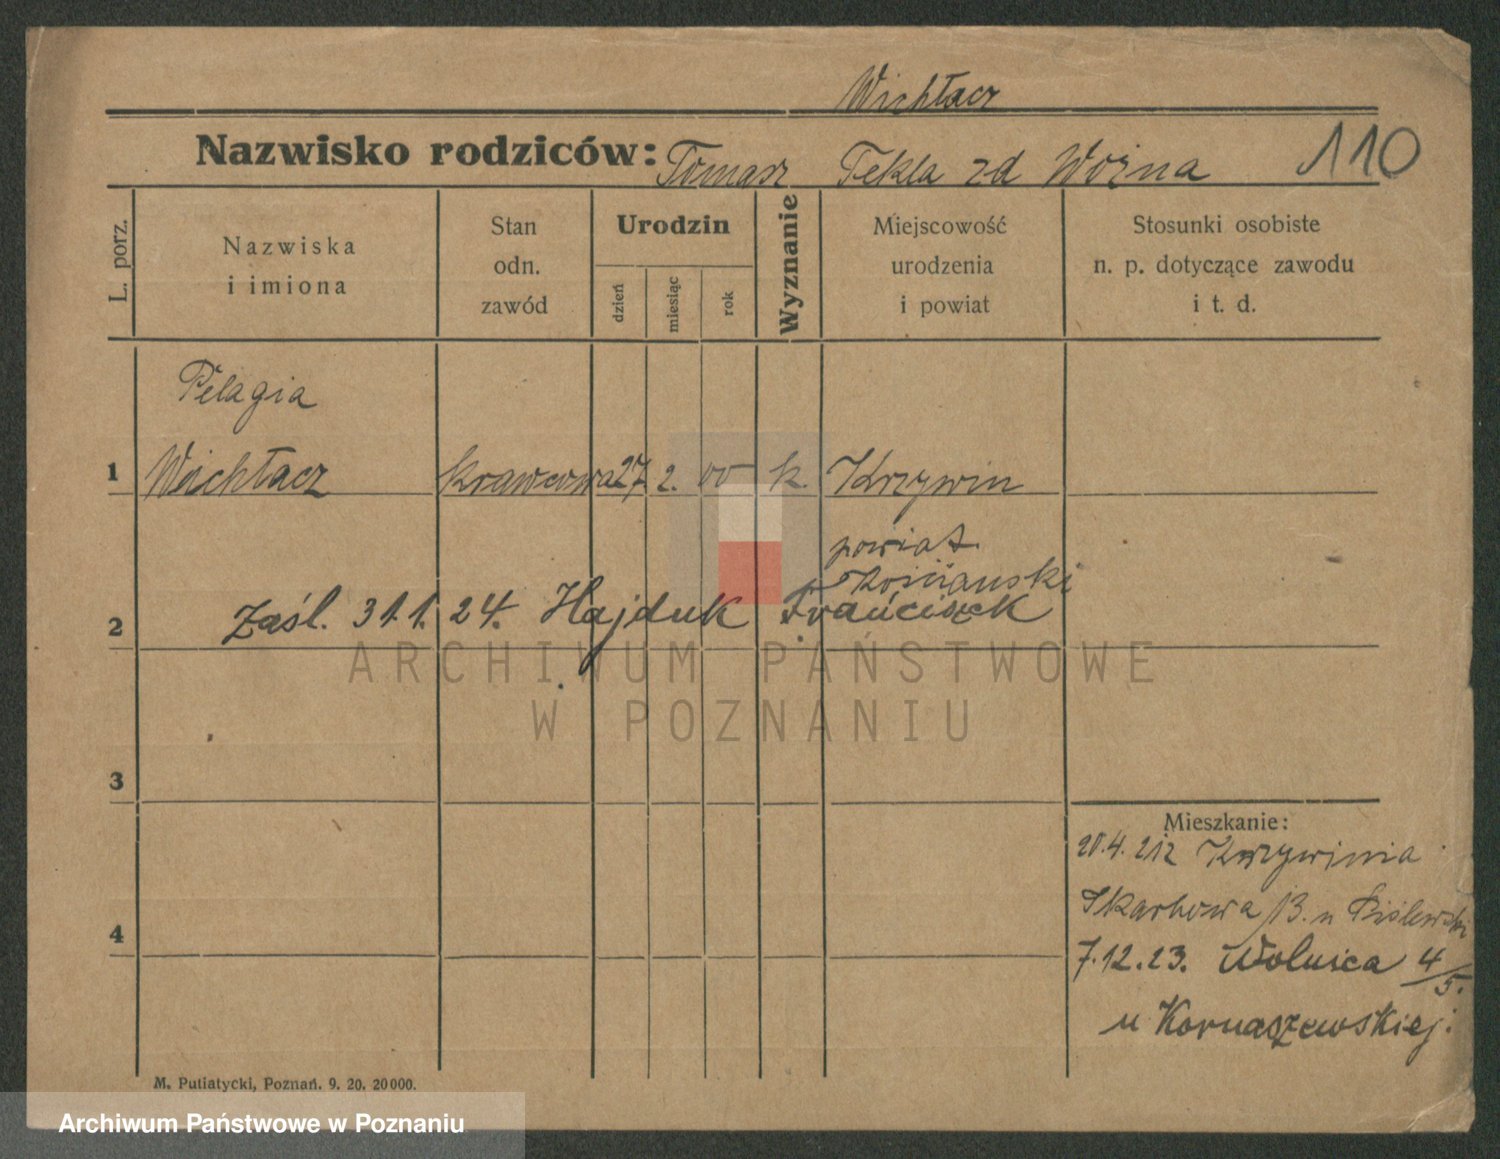 Wichłacz
Nazwisko rodziców: Tomasz Tekla zd Woźna 110
L. porz.
Nazwiska
i imiona
Stan
odn.
zawód
Urodzin
dzień
miesiąc
rok
Wyznanie
Miejscowość
urodzenia
i powiat
Stosunki osobiste
n. p. dotyczące zawodu
i t. d.
Pelagia
1 Wichłacz krawcowa 27 2. 00 k. Krzywin
powiat
Kościański
2 Zaśl. 31.1.24. Hajduk Franciszek
ARCHIWUM PAŃSTWOWE
W POZNANIU
3
Mieszkanie:
20.4. 212 Krzywinia
4 Skarbowa 13. u
7.12.23. Wolnica 4/5.
u Kornaszewskiej.
M. Putiatycki, Poznań. 9. 20. 20000.
Archiwum Państwowe w Poznaniu